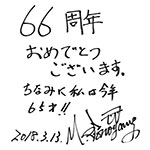 66周年
おめでとう
ございます。
ちなみに私は今年
65才!!
2018.3.13.